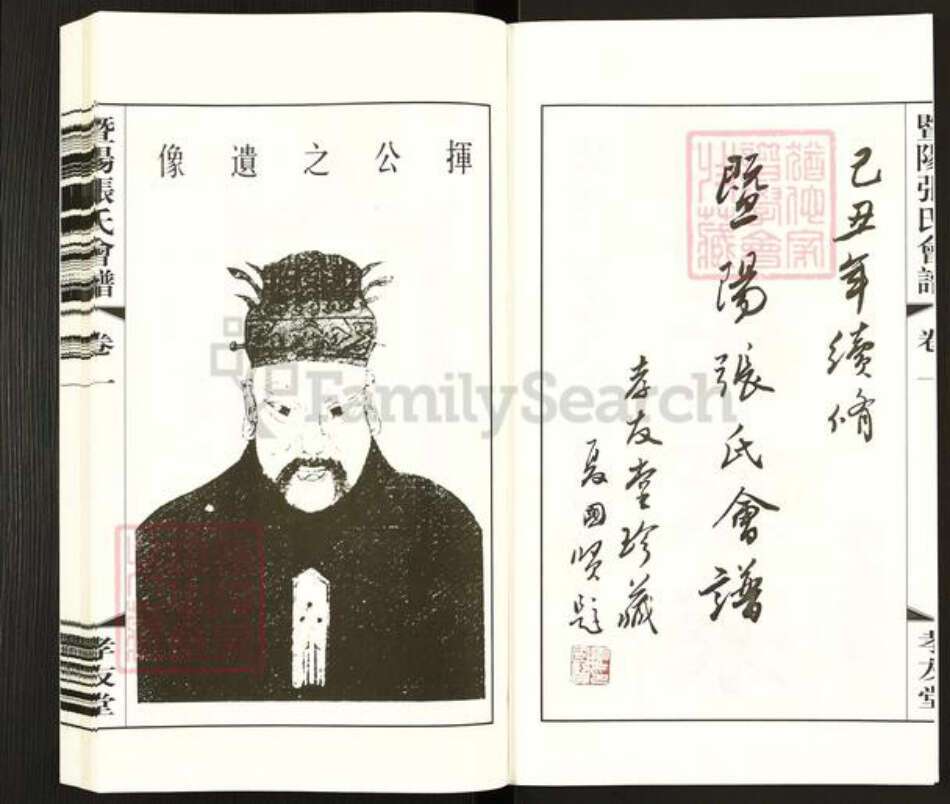 己丑年續脩
暨陽張氏會譜
孝友堂珍藏
夏國賢題
暨陽張氏會譜
卷
孝友堂
揮公之遺像
暨陽張氏會譜
卷一
孝友堂
FamilySearch